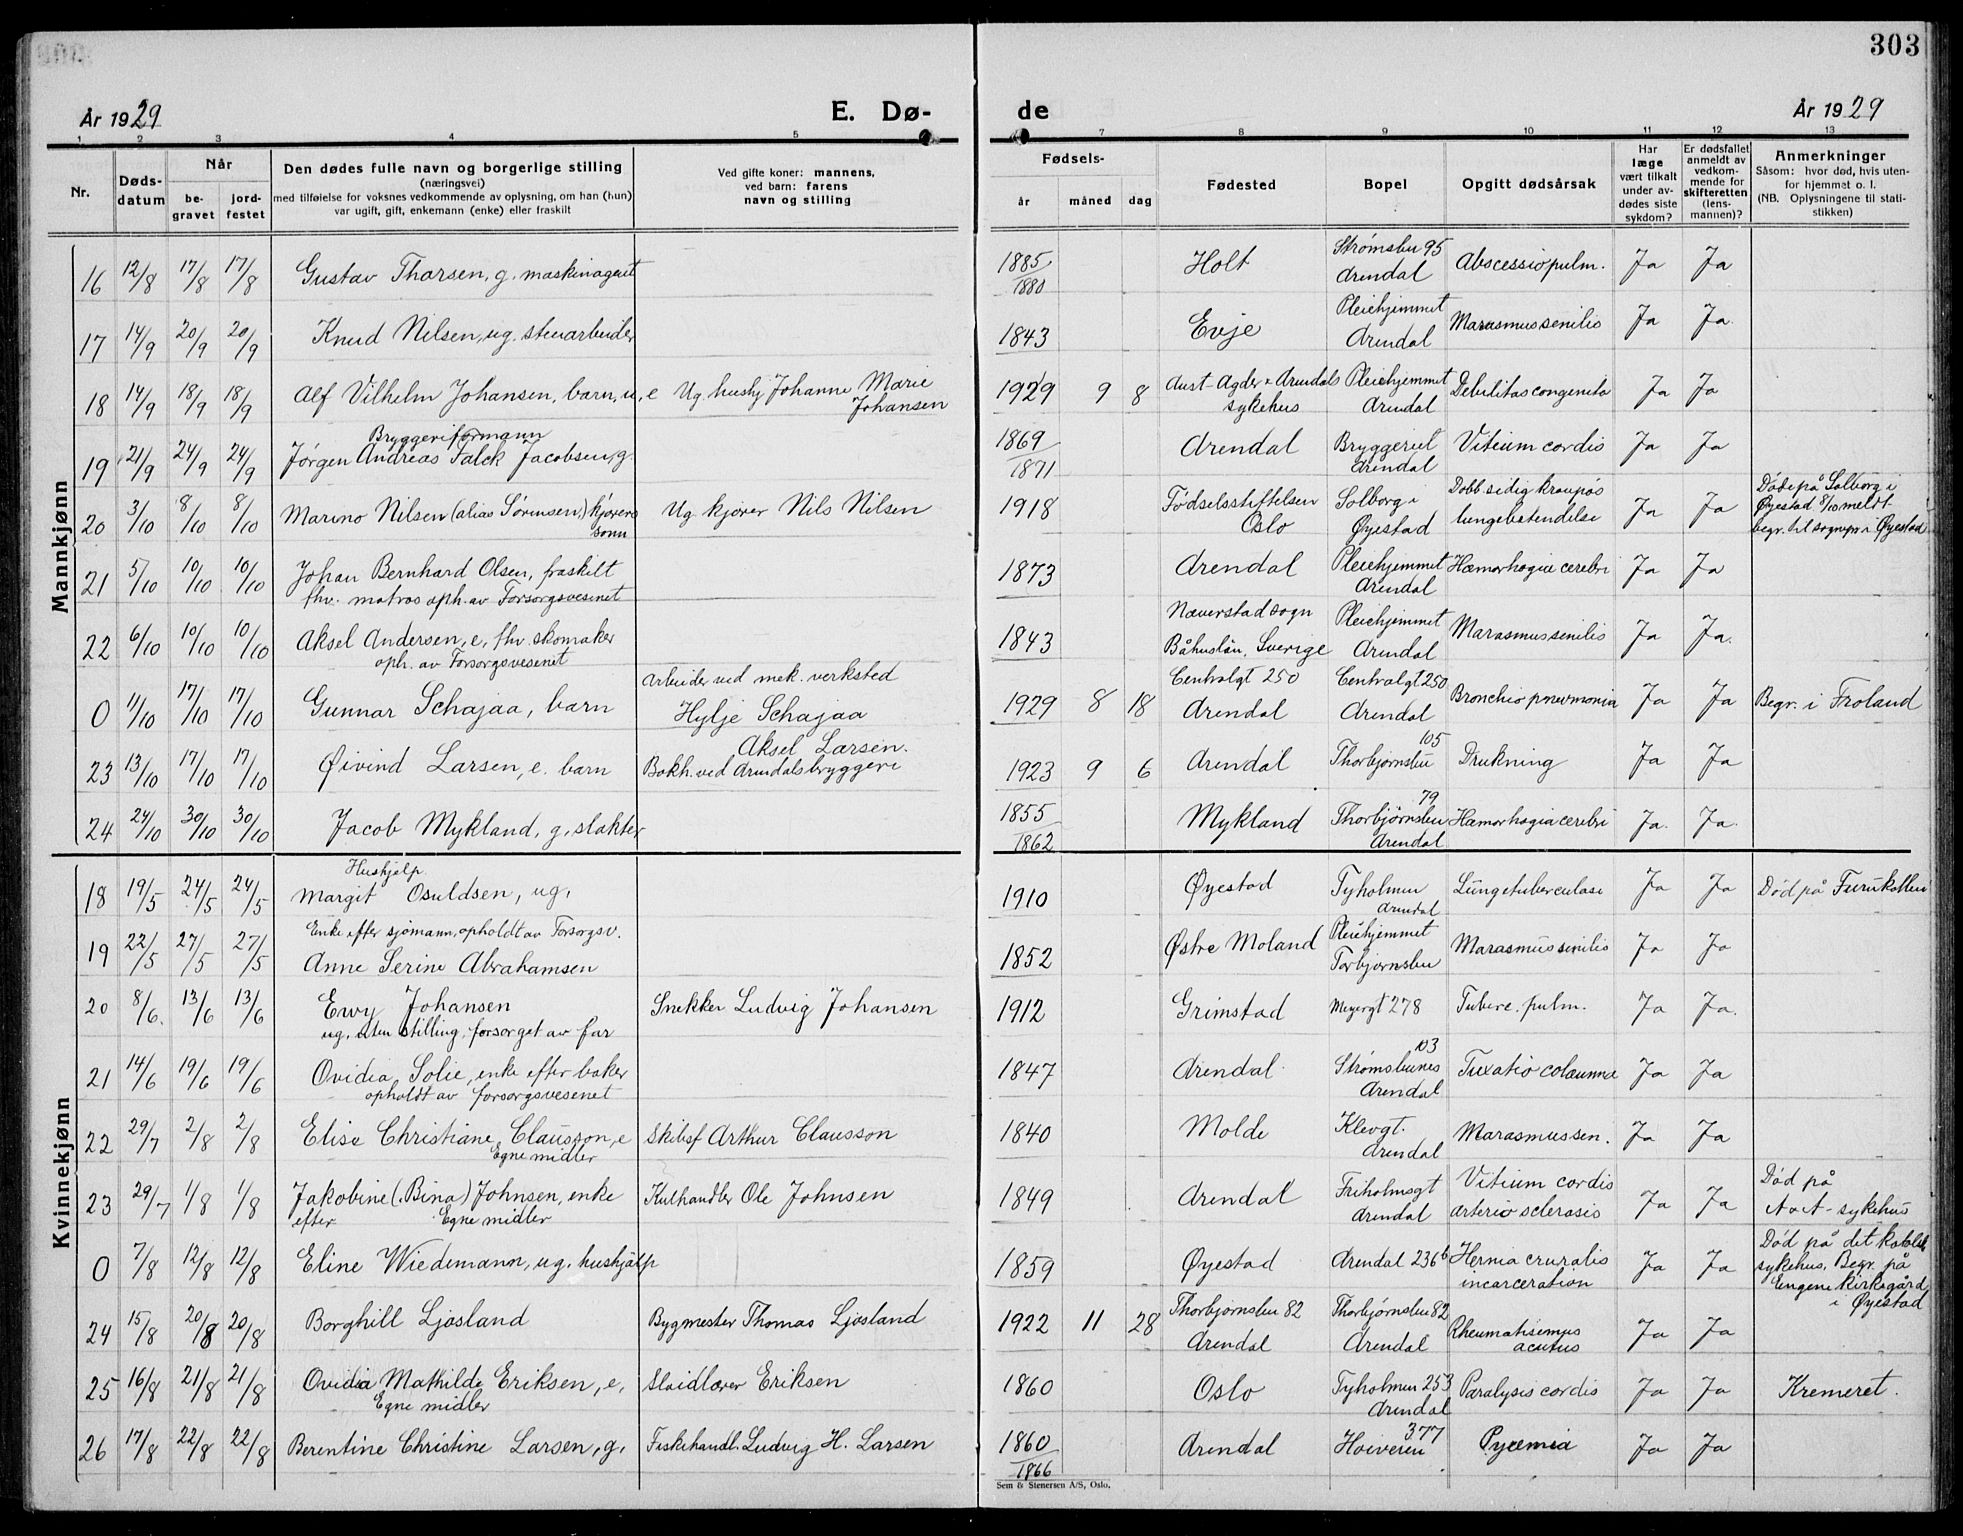 303
År 1929 E. Dø- de År 1929
1 2 3 4 5 7 8 9 10 11 12 13
Nr. Døds-datum Når be-gravet jord-festet
Den dødes fulle navn og borgerlige stilling
(næringsvei)
med tilføielse for voksnes vedkommende av oplysning, om han (hun)
var ugift, gift, enkemann (enke) eller fraskilt
Ved gifte koner: mannens,
ved barn: farens
navn og stilling
Fødsels-
år måned dag
Fødested
Bopel
Opgitt dødsårsak
Har
læge
vært tilkalt
under av-
dødes siste
sykdom?
Er dødsfallet
anmeldt av
vedkom-
mende for
skifteretten
(lens-
mannen)?
Anmerkninger
Såsom: hvor død, hvis uten-
for hjemmet o. l.
(NB. Oplysningene til stati-
stikken)
Mannkjønn
16 12/8 17/8 17/8 Gustav Thorsen, g. maskinagent 1885/1880 Holt Strømsbu 95 Arendal Abscessio pulm. Ja Ja
17 14/9 20/9 20/9 Knud Nilsen, ug. stenarbeider 1843 Evje Pleiehjemmet Arendal Marasmus senilis Ja Ja.
18 14/9 18/9 18/9 Alf Vilhelm Johansen, barn, u.e Ug. hushj Johanne Marie Johansen 1929 9 8 Aust-Agder & Arendals sykehus Pleiehjemmet Arendal Debilitas congenita Ja Ja
19 21/9 24/9 24/9 Bryggeriformann
Jørgen Andreas Falck Jacobsen, g. 1869/1871 Arendal Bryggeriet Arendal Vitium cordis Ja Ja
20 3/10 8/10 8/10 Marino Nilsen (alias Sørensen,) kjørers sønn Ug. kjører Nils Nilsen 1918 Fødselsstiftelsen Oslo Solborg i Øyestad Dobb.sidig kroupøs lungebetendelse Ja Ja Døde på Solborg i Øyestad 8/10 meldt begr. til sognepr. i Øyestad
21 5/10 10/10 10/10 Johan Bernhard Olsen, fraskilt
fhv. matros oph. av Forsorgsvesenet 1873 Arendal Pleiehjemmet Arendal Hæmorhagia cerebri Ja Ja
22 6/10 10/10 10/10 Aksel Andersen, e. fhv. skomaker
oph. av Forsorgsvesenet 1843 Næverstad sogn Båhuslän, Sverige Pleiehjemmet Arendal Marasmus senilis Ja Ja.
0 11/10 17/10 17/10 Gunnar Schajaa, barn Arbeider ved mek. verksted Hylje Schajaa 1929 8 18 Centralgt 250 Arendal Centralgt 250 Arendal Bronchio pnevmonia Ja Ja Begr. i Froland
23 13/10 17/10 17/10 Øivind Larsen, e. barn Aksel Larsen. Bokh. ved Arendals bryggeri 1923 9 6 Arendal Thorbjørnsbu 105 Drukning Ja Ja
24 24/10 30/10 30/10 Jacob Mykland, g, slakter 1855/1862 Mykland Thorbjørnsbu 79 Arendal Hæmorhagia cerebri Ja. Ja.
Kvinnekjønn
18 19/5 24/5 24/5 Hushjelp
Margit Osuldsen, ug, 1910 Øyestad Tyholmen Arendal Lungetuberculose Ja Ja Død på Furukollen
19 22/5 27/5 27/5 Enke efter sjømann, opholdt av Forsorgsv.
Anne Serine Abrahamsen 1852 Østre Moland Pleiehjemmet Torbjørnsbu Marasmus senilis Ja Ja
20 8/6. 13/6 13/6 Ewy Johansen
ug. uten stilling, forsorget av far Snekker Ludvig Johansen 1912 Grimstad Meyergt 278 Tuberc. pulm. Ja Ja.
21 14/6 19/6 19/6 Ovidia Solie, enke efter baker
opholdt av forsorgsvesenet 1847 Arendal Strømsbunes 103 Arendal Ja Ja
22 29/7 2/8 2/8 Elise Christiane Clausson, e
Egne midler Skibsf Arthur Clausson 1840 Molde Klevgt. Arendal Marasmus sen. Ja Ja
23 29/7 1/8 1/8 Jakobine (Bina) Johnsen, enke
efter Egne midler Kulhandler Ole Johnsen 1849 Arendal Friholmsgt Arendal Vitium cordis arteriosclerosis Ja Ja Død på A.A-sykehus
0 7/8 12/8 12/8 Eline Wiedemann, ug. hushjelp 1859 Øyestad Arendal 236b Hernia cruralis incarceration Ja Ja Død på det katolske sykehus. Begr. på Engene kirkegård i Øyestad
24 15/8 20/8 20/8 Borghill Ljosland Bygmester Thomas Ljosland 1922 11 28 Thorbjørnsbu 82 Arendal Thorbjørnsbu 82 Arendal Rheumatisemus acutus Ja Ja
25 16/8 21/8 21/8 Ovidia Mathilde Eriksen, e,
Egne midler Eriksen 1860 Oslo Tyholmen 253 Arendal Paralysis cordis Ja Ja Kremeret.
26 17/8 22/8 22/8 Berentine Christine Larsen, g, Fiskehandl. Ludvig H. Larsen 1860/1866 Arendal Høiveien 377 Pyæmia Ja Ja
Sem & Stenersen A/S, Oslo.